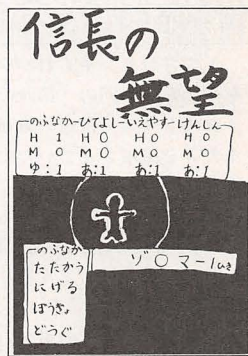 信長の
無望
のぶなが ひでよし いえやす けんしん
H 1 H 0 H 0 H 0
M 0 M 0 M 0 M 0
ゆ:1 あ:1 あ:1 あ:1
のぶなが
たたかう
にげる
ぼうぎょ
どうぐ
ゾ〇マー1ひき